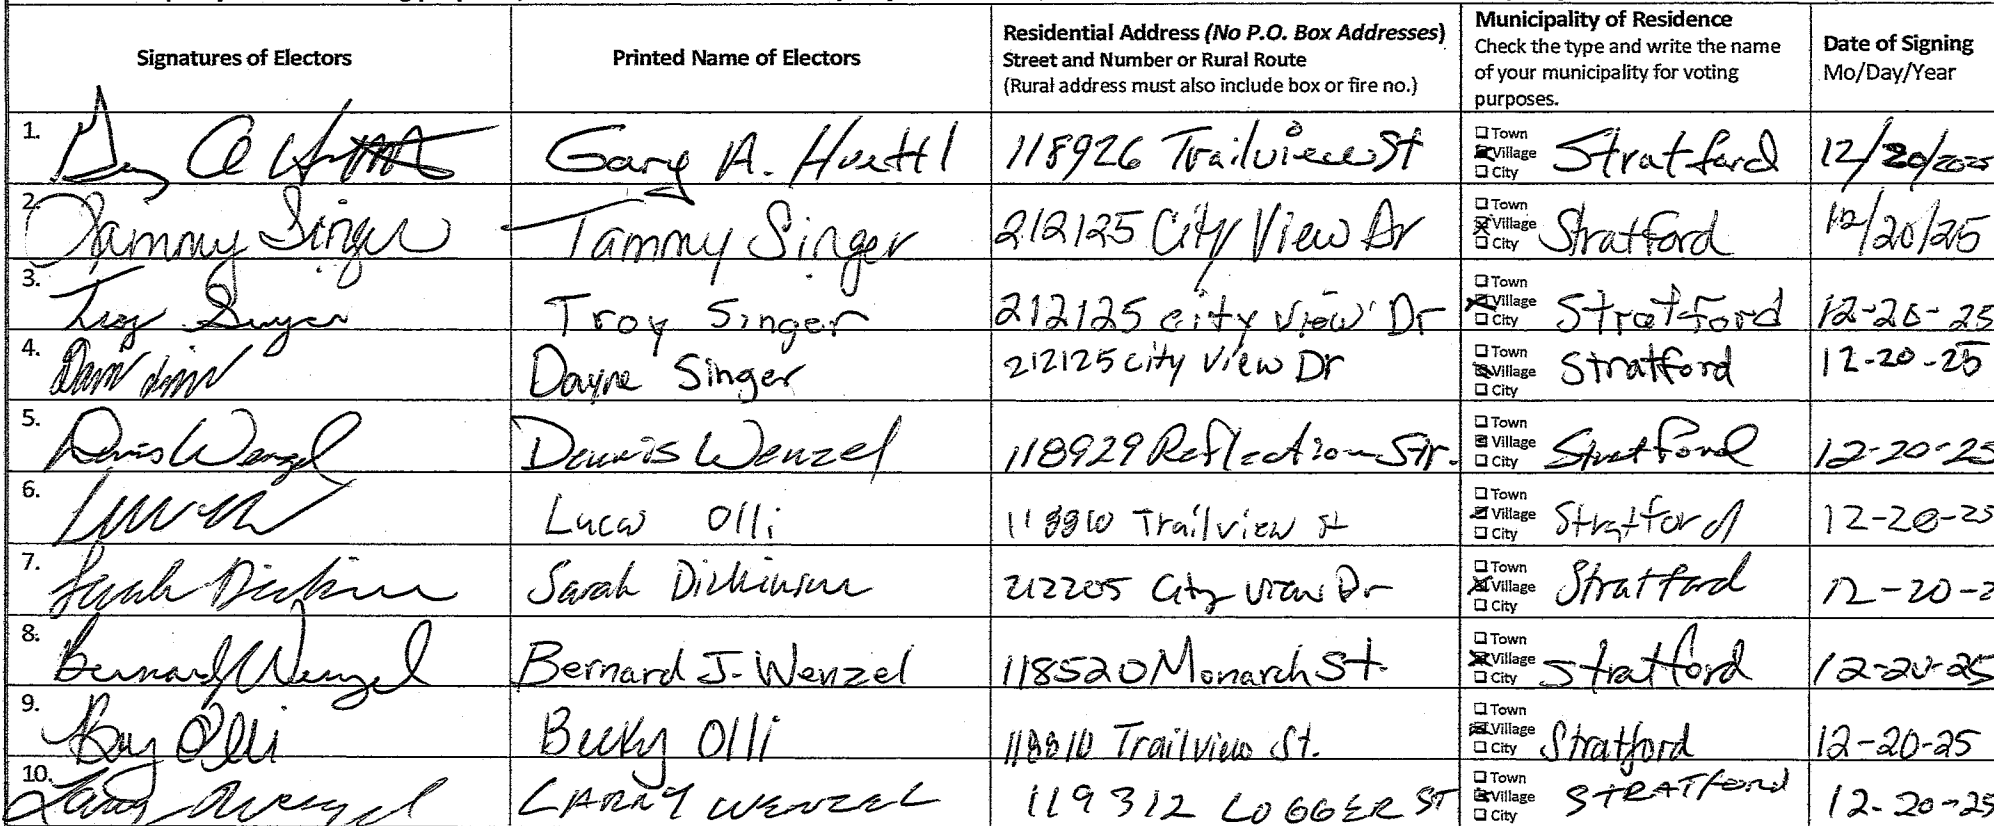 Signatures of Electors
Printed Name of Electors
Residential Address (No P.O. Box Addresses)
Street and Number or Rural Route
(Rural address must also include box or fire no.)
Municipality of Residence
Check the type and write the name
of your municipality for voting
purposes.
Date of Signing
Mo/Day/Year
1. Gary A. Huettl 118926 Trailview St Town Village City Stratford 12/20/2025
2. Tammy Singer Tammy Singer 212125 City View Dr Town Village City Stratford 12/20/25
3. Troy Singer Troy Singer 212125 city view Dr Town Village City Stratford 12-20-25
4. Dayne Singer 212125 city View Dr Town Village City Stratford 12-20-25
5. Dennis Wenzel Dennis Wenzel 118929 Reflection Str. Town Village City Stratford 12-20-25
6. Lucas Olli 118810 Trailview st Town Village City Stratford 12-20-25
7. Sarah Dickinson Sarah Dickinson 212205 City View Dr Town Village City Stratford 12-20-2
8. Bernard Wenzel Bernard J. Wenzel 118520 Monarch St. Town Village City Stratford 12-20-25
9. Olli Becky Olli 118810 Trailview St. Town Village City Stratford 12-20-25
10. Larry Wenzel LARRY WENZEL 119312 LOGGER ST Town Village City STRATford 12-20-25